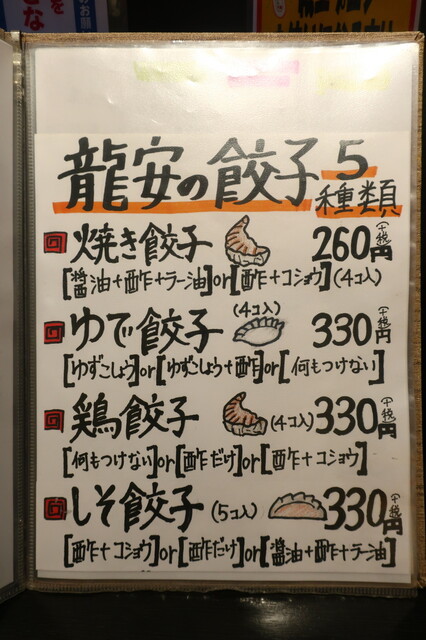 龍安の餃子5種類
焼き餃子 260円+税
[醤油+酢+ラー油]or[酢+コショウ](4コ入)
ゆで餃子(4コ入) 330円+税
[ゆずこしょう]or[ゆずこしょう+酢]or[何もつけない]
鶏餃子(4コ入)330円+税
[何もつけない]or[酢だけ]or[酢+コショウ]
しそ餃子(5コ入)330円+税
[酢+コショウ]or[酢だけ]or[醤油+酢+ラー油]